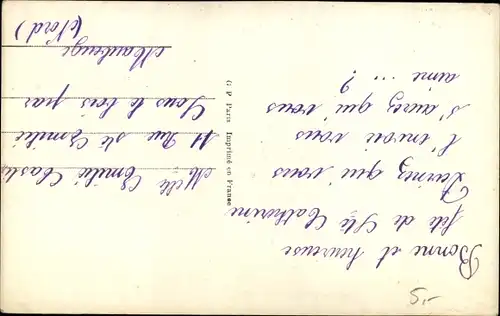 Bonne et heureuse
fête de Ste Catherine
Devinez qui vous
l'envoi vous
s'aurez qui vous
aime ... ?
G P Paris Imprimé en France
Mlle Emilie
11 Rue Ste Emilie
Sous le bois par
Maubeuge
(Nord)
5.-